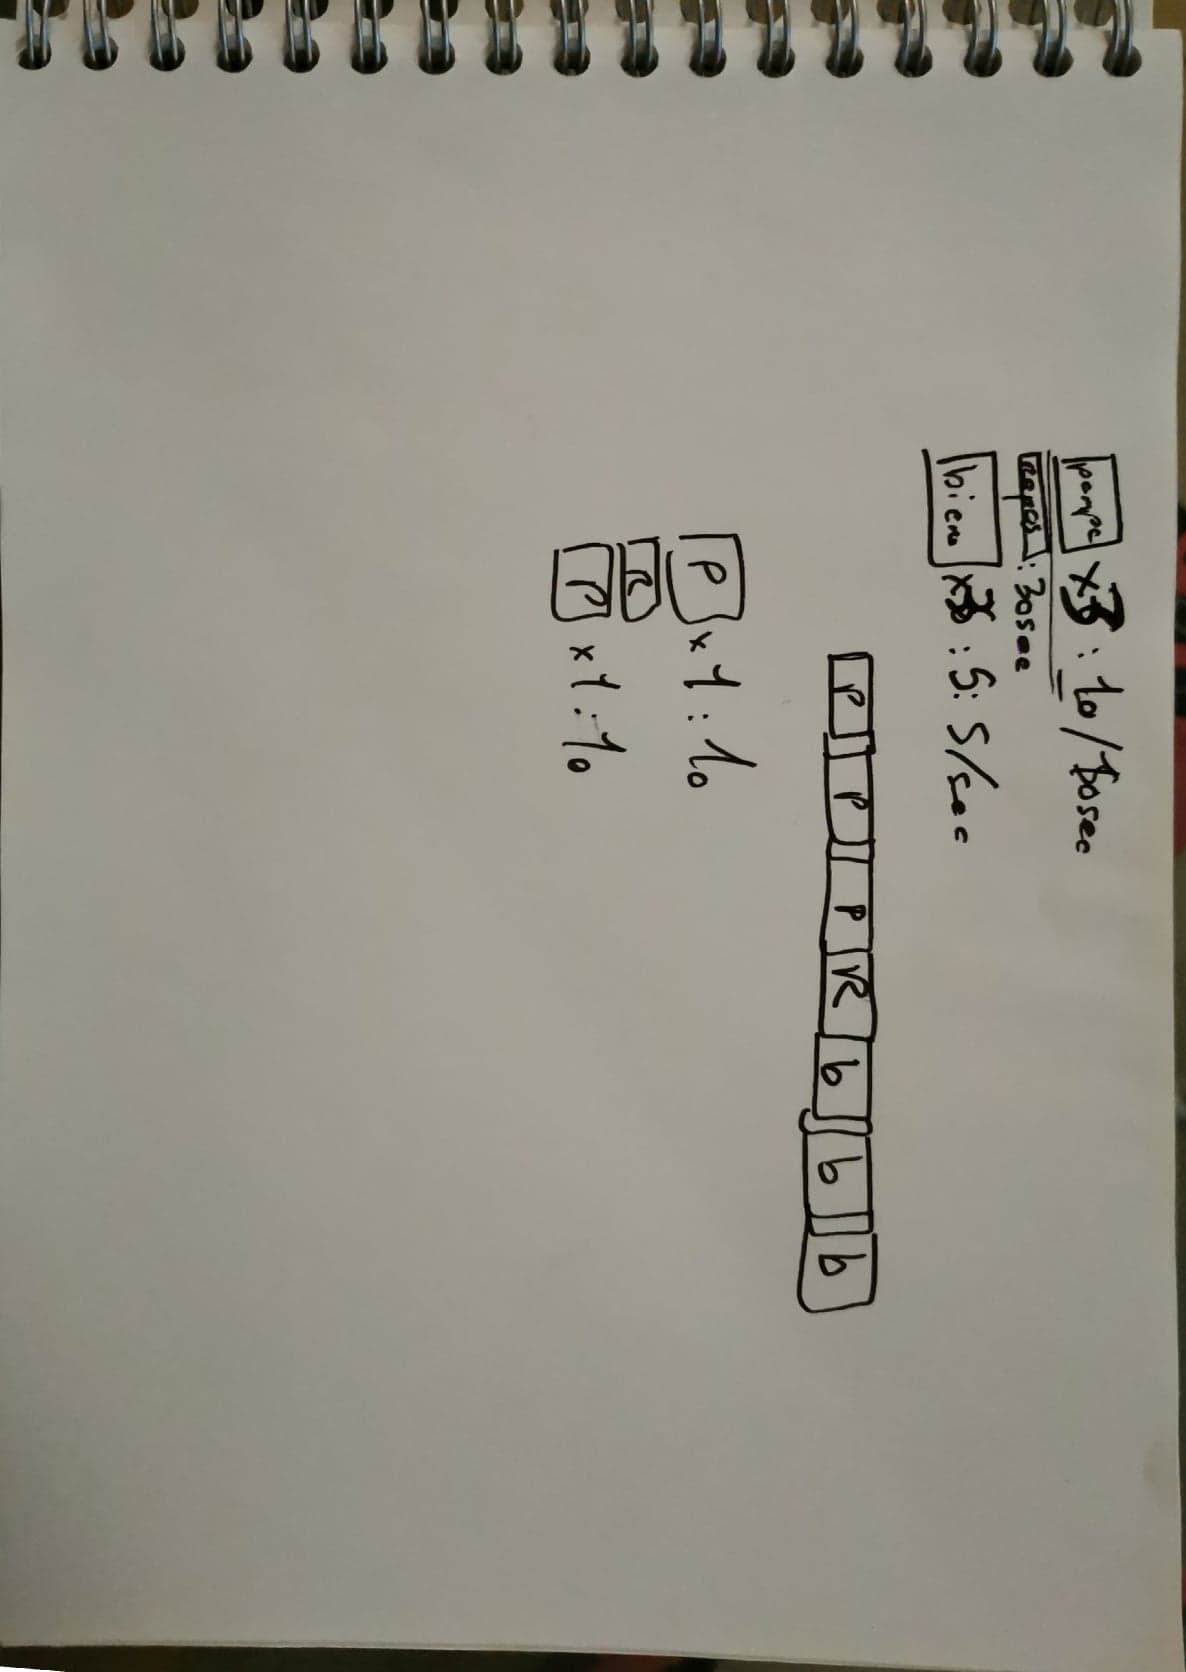 pompe x3 : 10/30sec
repos : 30sec
biere x3 : 5 : 5/sec
P P P R b b b
P x 1 : 10
R
P x 1 : 10